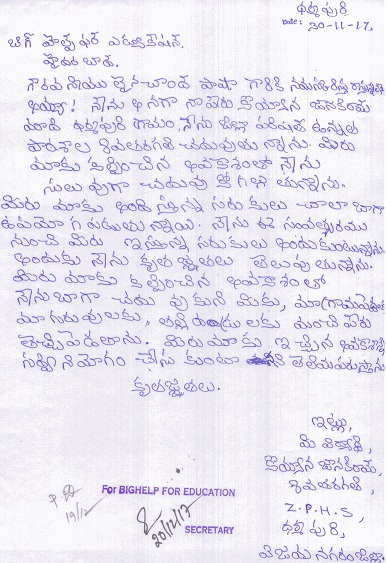 ధర్మపురి
Date: 20-11-17.
బిగ్ హెల్ప్ ఫర్ ఎడ్యుకేషన్.
హైదరాబాద్.
గౌరవనీయులైన చాంద్ పాషా గారికి నమస్కరిస్తూ
అయ్యా! నేను అనగా నా పేరు జానకిరామ్
మాది ధర్మపురి గ్రామం. నేను జిల్లా పరిషత్ ఉన్నత
పాఠశాల 9వతరగతి చదువుచున్నాను. మీరు
మాకు కల్పించిన అవకాశంతో నేను
సులువుగా చదువు కోగలుగుతున్నాను.
మీరు మాకు అందిస్తున్న సరుకులు చాలా బాగా
ఉపయోగపడుతున్నాయి. నేను ఈ సంవత్సరము
నుంచి మీరు ఇస్తున్న సరుకులు అందుకుంటున్నాను.
అందుకు నేను కృతజ్ఞతలు తెలుపుతున్నాను.
మీరు మాకు కల్పించిన అవకాశంతో
నేను బాగా చదువుకుని మీకు, మా గ్రామ
మా గురువులకు, తల్లిదండ్రులకు మంచి పేరు
తెచ్చిపెడతాను. మీరు మాకు ఇచ్చిన అవకాశాన్ని
సద్వినియోగం చేసుకుంటానని తెలియపరుస్తున్నాను
కృతజ్ఞతలు.
ఇట్లు,
మీ విద్యార్థి,
జానకిరామ్,
9వతరగతి,
Z.P.H.S,
ధర్మపురి,
విజయనగరం జిల్లా.
For BIGHELP FOR EDUCATION
19/12
20/12/17
SECRETARY